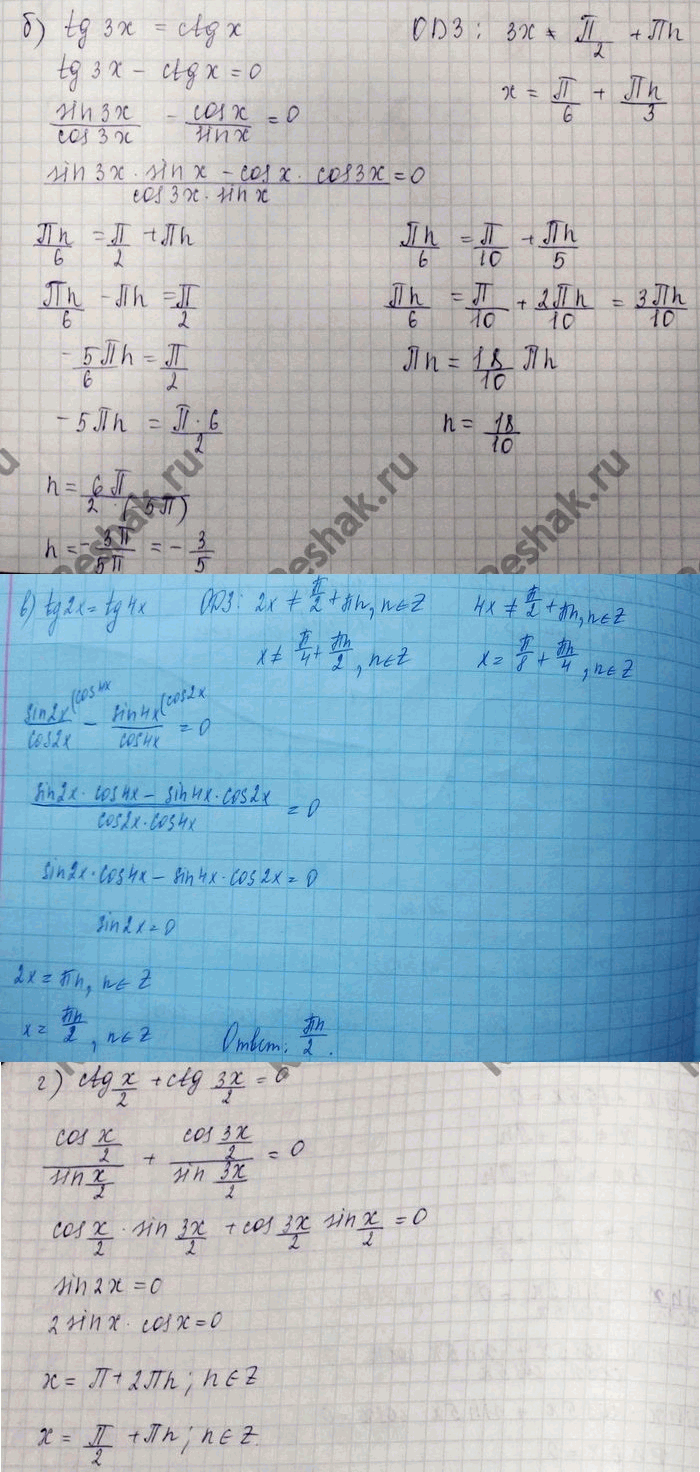 б) tg 3x = ctg x
ОДЗ: 3x ≠ П/2 + Пn
tg 3x - ctg x = 0
x = П/6 + Пn/3
sin 3x/cos 3x - cos x/sin x = 0
(sin 3x · sin x - cos x · cos 3x)/(cos 3x · sin x) = 0
Пn/6 = П/2 + Пn
Пn/6 = П/10 + Пn/5
Пn/6 - Пn = П/2
Пn/6 = П/10 + 2Пn/10 = 3Пn/10
- 5/6 Пn = П/2
Пn = 18/10 Пn
- 5Пn = П·6/2
n = 18/10
n = 6П/2·(5П)
n = -3П/5П = - 3/5
Reshak.ru
Reshak.ru
в) tg2x = tg4x
ОДЗ: 2x ≠ π/2 + πn, n∈Z
4x ≠ π/2 + πn, n∈Z
x ≠ π/4 + πn/2, n∈Z
x = π/8 + πn/4, n∈Z
sin2x/cos2x (cos4x - sin4x/cos4x (cos2x = 0
(sin2x · cos4x - sin4x · cos2x)/(cos2x · cos4x) = 0
sin2x · cos4x - sin4x · cos2x = 0
sin2x = 0
2x = πn, n∈Z
x = πn/2, n∈Z
Ответ: πn/2.
г) ctg x/2 + ctg 3x/2 = 0
cos x/2 / sin x/2 + cos 3x/2 / sin 3x/2 = 0
cos x/2 · sin 3x/2 + cos 3x/2 sin x/2 = 0
sin 2x = 0
2 sin x · cos x = 0
x = П + 2Пn; n∈Z
x = П/2 + Пn; n∈Z.